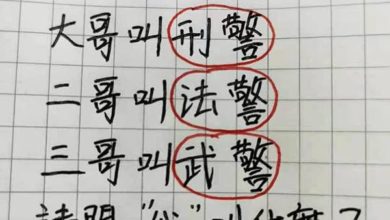 大哥叫刑警
二哥叫法警
三哥叫武警